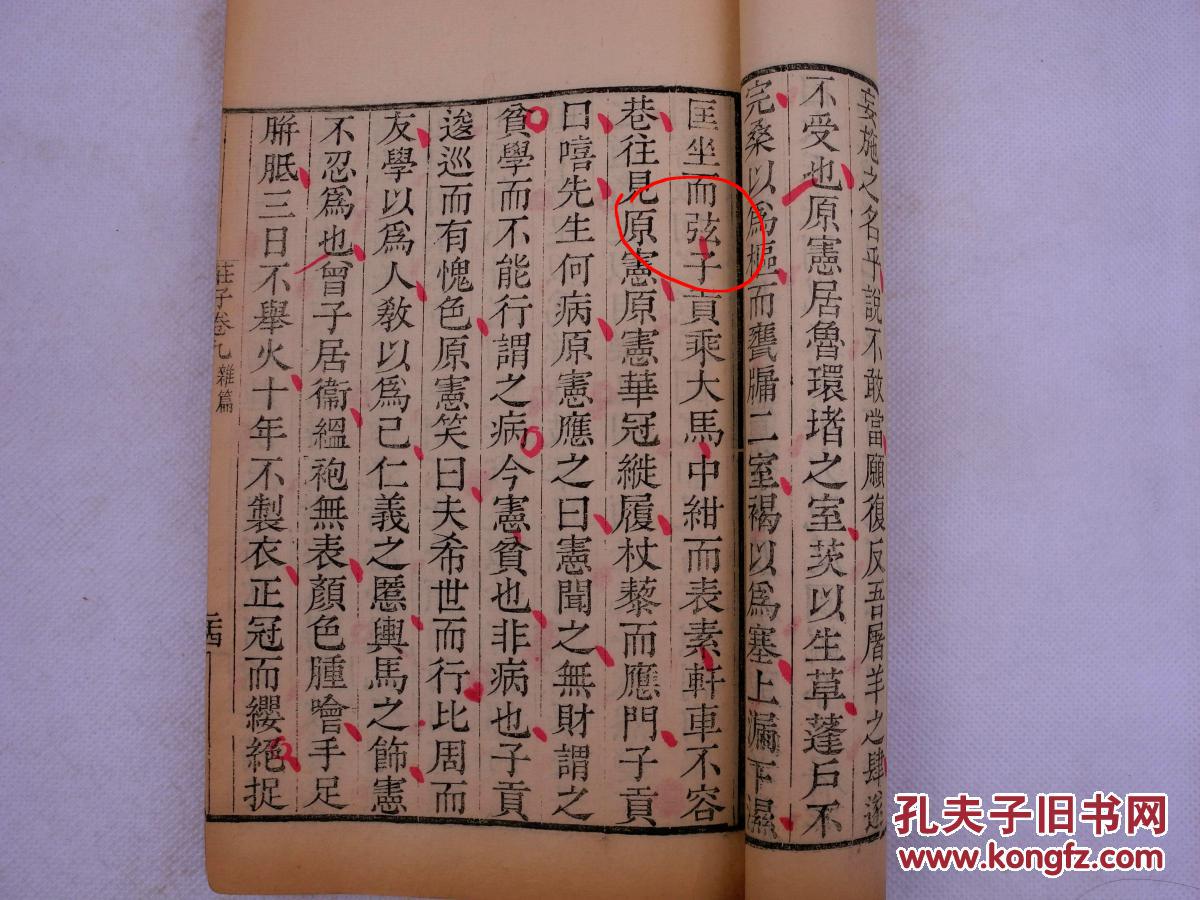 妄施之名乎說不敢當願復反吾屠羊之肆遂
不受也原憲居魯環堵之室茨以生草蓬戶不
完桑以爲樞而甕牖二室褐以爲塞上漏下濕
匡坐而弦子貢乘大馬中紺而表素軒車不容
巷往見原憲原憲華冠縰履杖藜而應門子貢
曰嘻先生何病原憲應之曰憲聞之無財謂之
貧學而不能行謂之病今憲貧也非病也子貢
逡巡而有愧色原憲笑曰夫希世而行比周而
友學以爲人教以爲己仁義之慝輿馬之飾憲
不忍爲也曾子居衞縕袍無表顏色腫噲手足
胼胝三日不舉火十年不製衣正冠而纓絕捉
莊子卷九 雜篇
孔夫子旧书网
www.kongfz.com